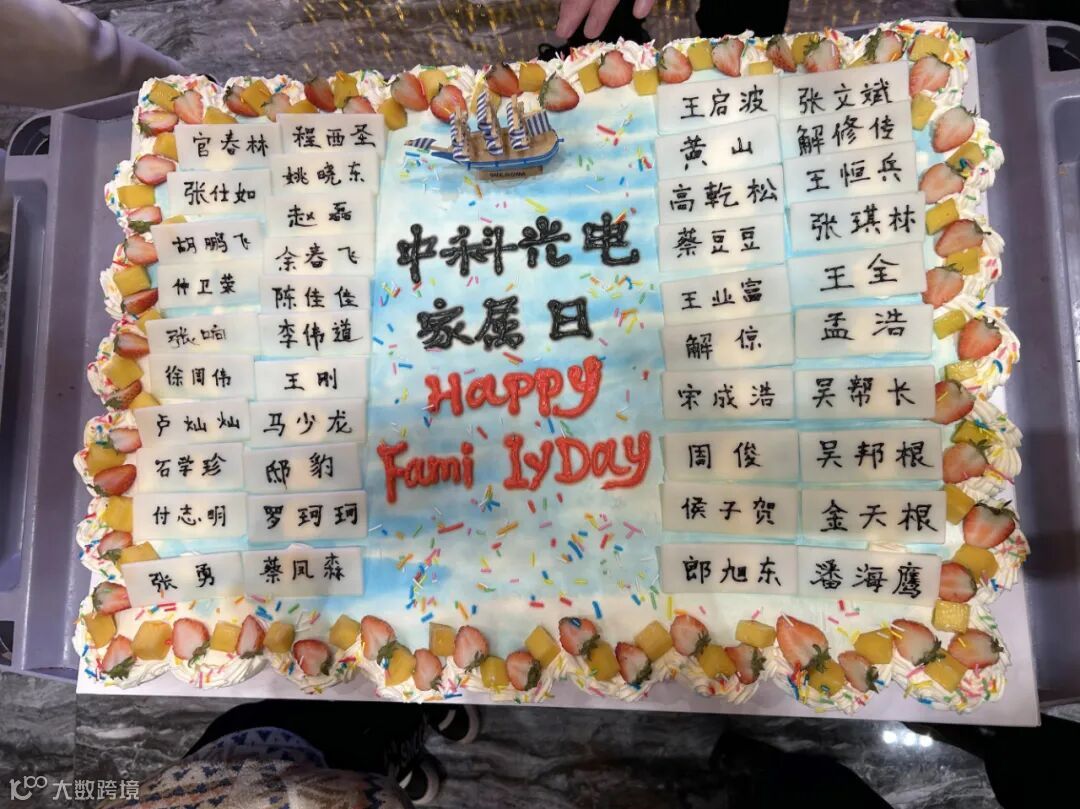 官春林 程西圣
张仕如 姚晓东
胡鹏飞 赵磊
仲卫荣 余春飞
张响 陈佳佳
徐周伟 李伟道
卢灿灿 王刚
石学珍 马少龙
付志明 邸豹
张勇 罗珂珂
蔡凤森
中科光电
家属日
Happy
Fami lyDay
王启波 张文斌
黄山 解修传
高乾松 王恒兵
蔡豆豆 张琪林
王业富 王全
解倞 孟浩
宋成浩 吴帮长
周俊 吴邦根
侯子贺 金天根
郎旭东 潘海鹰
大数跨境